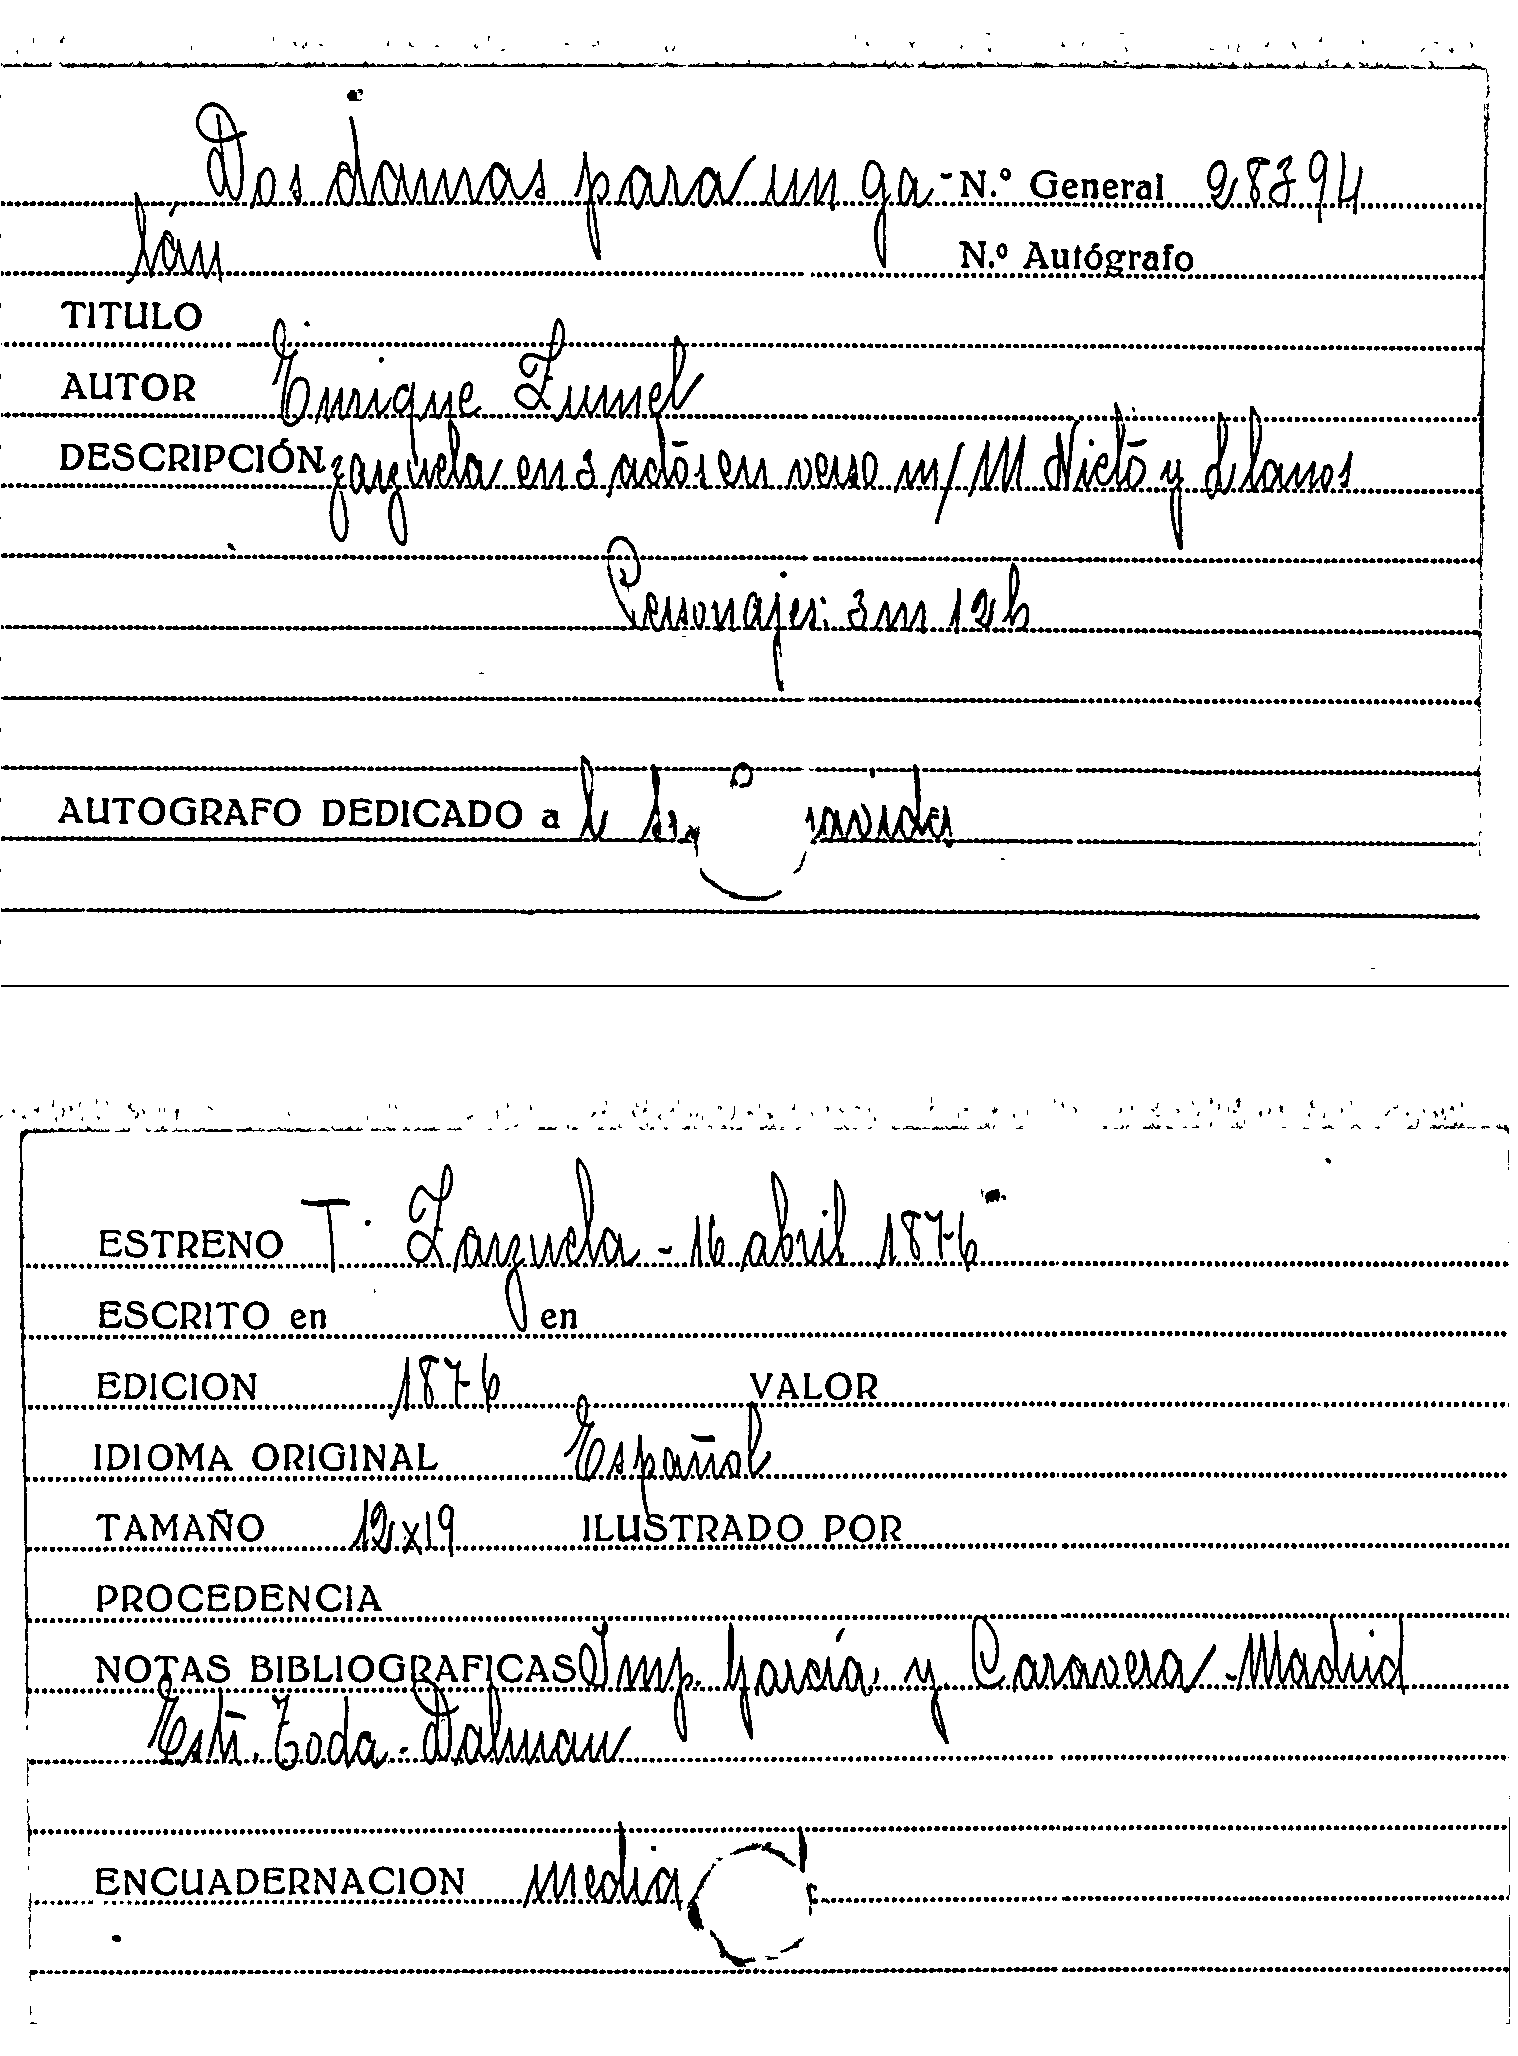 Dos damas para un ga- N.º General 28394
lán N.º Autógrafo
TITULO
AUTOR Enrique Zumel
DESCRIPCIÓN zarzuela en 3 actos en verso m/ M Nieto y Llanos
Personajes: 3 m 12 h
AUTOGRAFO DEDICADO a
ESTRENO T. Zarzuela - 16 abril 1876
ESCRITO en en
EDICION 1876 VALOR
IDIOMA ORIGINAL Español
TAMAÑO 12x19 ILUSTRADO POR
PROCEDENCIA
NOTAS BIBLIOGRAFICAS Imp. García y Caravera - Madrid
Toda - Dalmau
ENCUADERNACION media